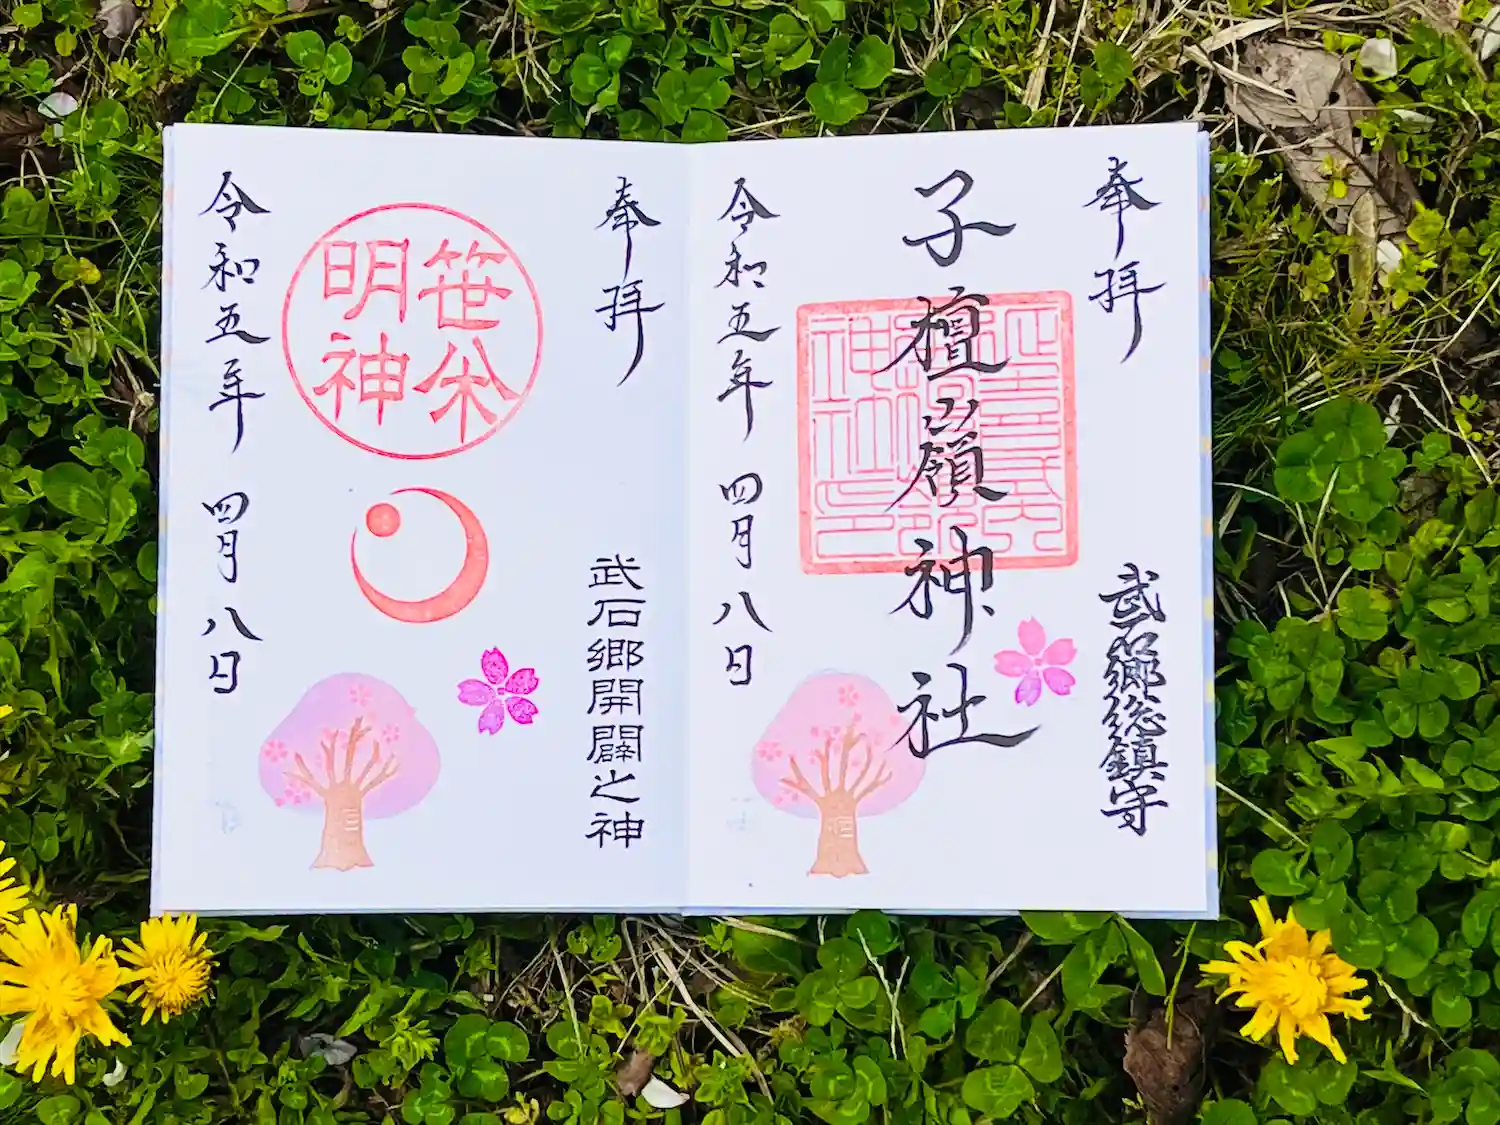 奉拝
武石郷総鎮守
子檀嶺神社
令和五年 四月 八日
奉拝
武石郷開闢之神
明神
令和五年 四月 八日